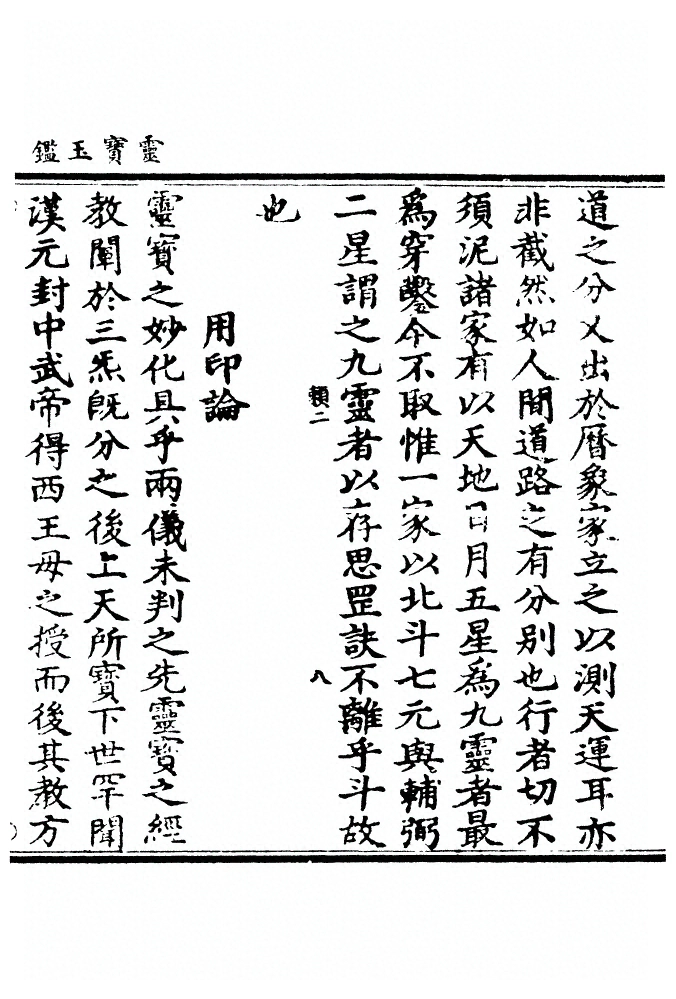 靈寶玉鑑
道之分乂出於曆象家立之以測天運耳亦
非截然如人間道路之有分別也行者切不
須泥諸家有以天地日月五星爲九靈者最
爲穿鑿今不取惟一家以北斗七元與輔弼
二星謂之九靈者以存思罡訣不離乎斗故
也
頼二 八
用印論
靈寶之妙化具乎兩儀未判之先靈寶之經
教闡於三炁旣分之後上天所寶下世罕聞
漢元封中武帝得西王母之授而後其教方